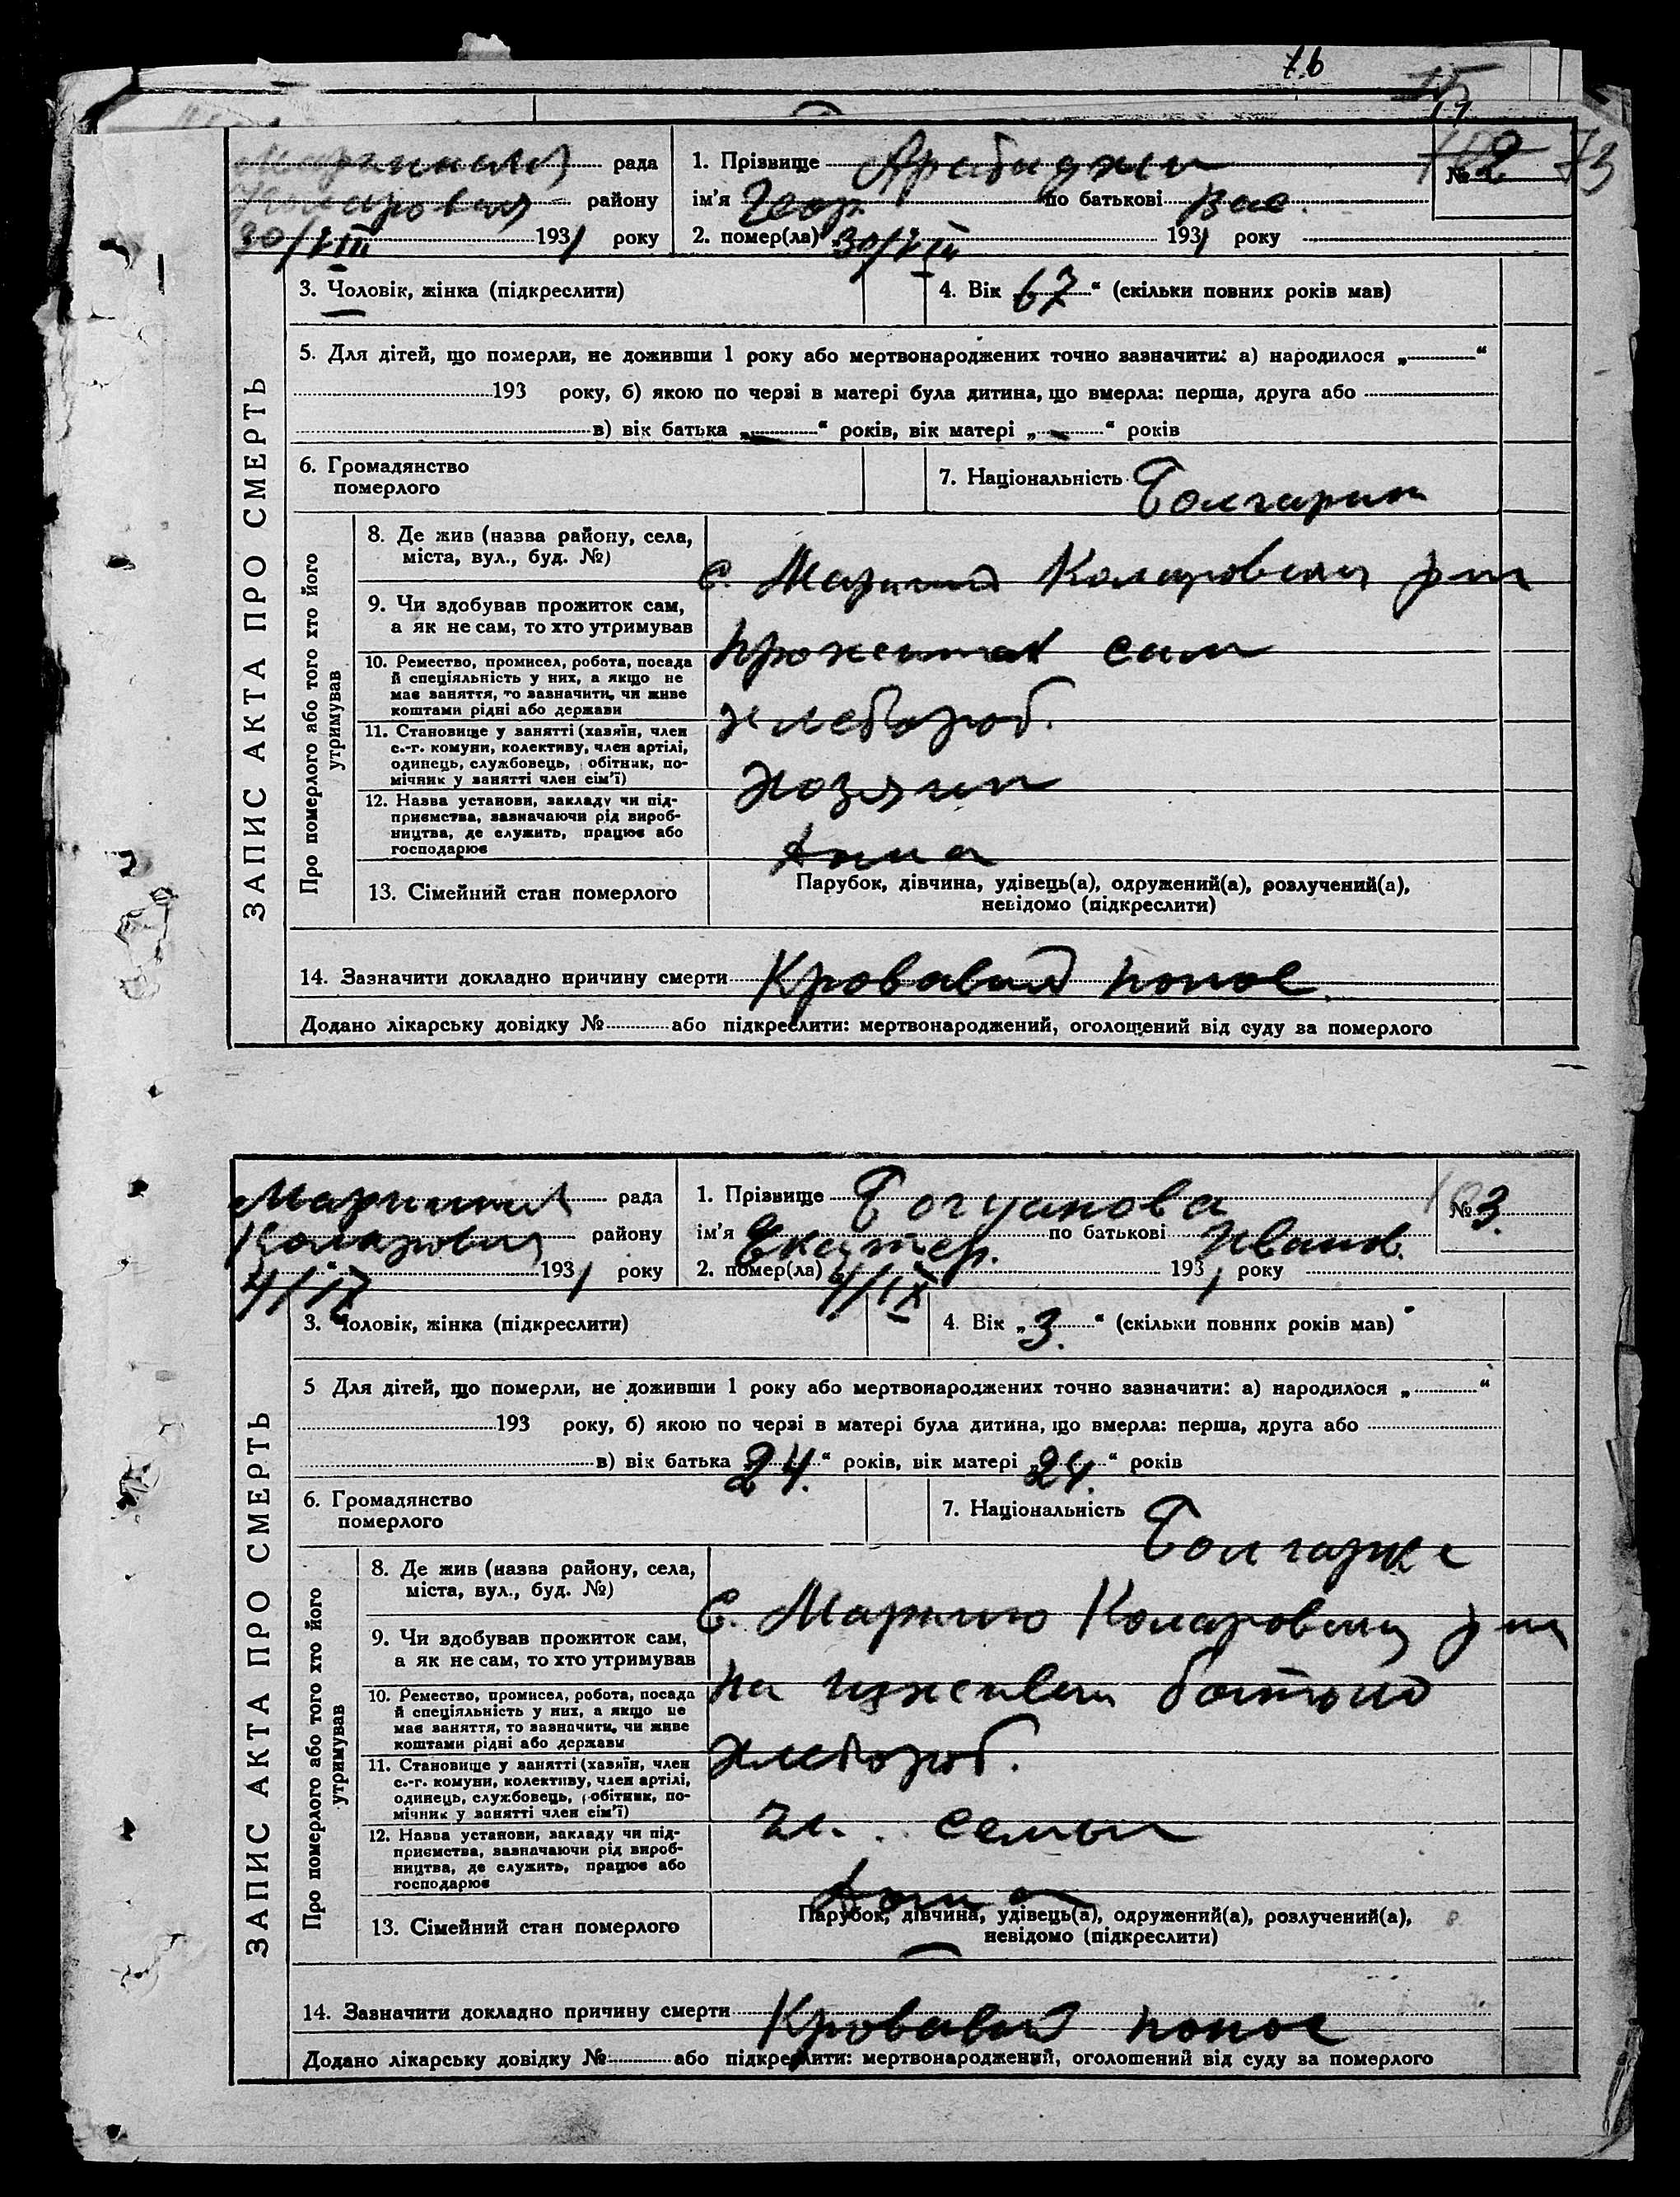 76
15
73
ЗАПИС АКТА ПРО СМЕРТЬ
рада
району
30/VIII 1931 року
1. Прізвище Арабаджи
№ 2
ім'я Геор. по батькові Вас.
2. помер(ла) 30/VIII 1931 року
3. Чоловік, жінка (підкреслити)
4. Вік 67 “ (скільки повних років мав)
5. Для дітей, що померли, не доживши 1 року або мертвонароджених точно зазначити: а) народилося „ “
193 року, б) якою по черзі в матері була дитина, що вмерла: перша, друга або
в) вік батька „ - “ років, вік матері „ - “ років
6. Громадянство
померлого
7. Національність Болгарин
Про померлого або того хто його
утримував
8. Де жив (назва району, села,
міста, вул., буд. №)
с. Коларовский р-н
9. Чи здобував прожиток сам,
а як не сам, то хто утримував
прожиток сам
10. Ремество, промисел, робота, посада
й спеціяльність у них, а якщо не
має заняття, то зазначити, чи живе
коштами рідні або держави
хлебороб.
11. Становище у занятті (хазяїн, член
с.-г. комуни, колективу, член артілі,
одинець, службовець, обітник, по-
мічник у занятті член сім'ї)
Хозяин
12. Назва установи, закладу чи під-
приємства, зазначаючи рід вироб-
ництва, де служить, працює або
господарює
дома
13. Сімейний стан померлого
Парубок, дівчина, удівець(а), одружений(а), розлучений(а),
невідомо (підкреслити)
14. Зазначити докладно причину смерти Кровавий понос
Додано лікарську довідку № або підкреслити: мертвонароджений, оголошений від суду за померлого
ЗАПИС АКТА ПРО СМЕРТЬ
рада
району
4/IX 1931 року
1. Прізвище Богданова
№ 3.
ім'я Екатер. по батькові Иванов.
2. помер(ла) 4/IX 1931 року
3. Чоловік, жінка (підкреслити)
4. Вік „ 3. “ (скільки повних років мав)
5 Для дітей, що померли, не доживши 1 року або мертвонароджених точно зазначити: а) народилося „ “
193 року, б) якою по черзі в матері була дитина, що вмерла: перша, друга або
в) вік батька 24. “ років, вік матері 24. “ років
6. Громадянство
померлого
7. Національність Болгарка
Про померлого або того хто його
утримував
8. Де жив (назва району, села,
міста, вул., буд. №)
с. Коларовский р-н
9. Чи здобував прожиток сам,
а як не сам, то хто утримував
на
10. Ремество, промисел, робота, посада
й спеціяльність у них, а якщо не
має заняття, то зазначити, чи живе
коштами рідні або держави
хлебороб.
11. Становище у занятті (хазяїн, член
с.-г. комуни, колективу, член артілі,
одинець, службовець, обітник, по-
мічник у занятті член сім'ї)
чл. семьи
12. Назва установи, закладу чи під-
приємства, зазначаючи рід вироб-
ництва, де служить, працює або
господарює
дома
13. Сімейний стан померлого
Парубок, дівчина, удівець(а), одружений(а), розлучений(а),
невідомо (підкреслити)
14. Зазначити докладно причину смерти Кровавий понос
Додано лікарську довідку № або підкреслити: мертвонароджений, оголошений від суду за померлого